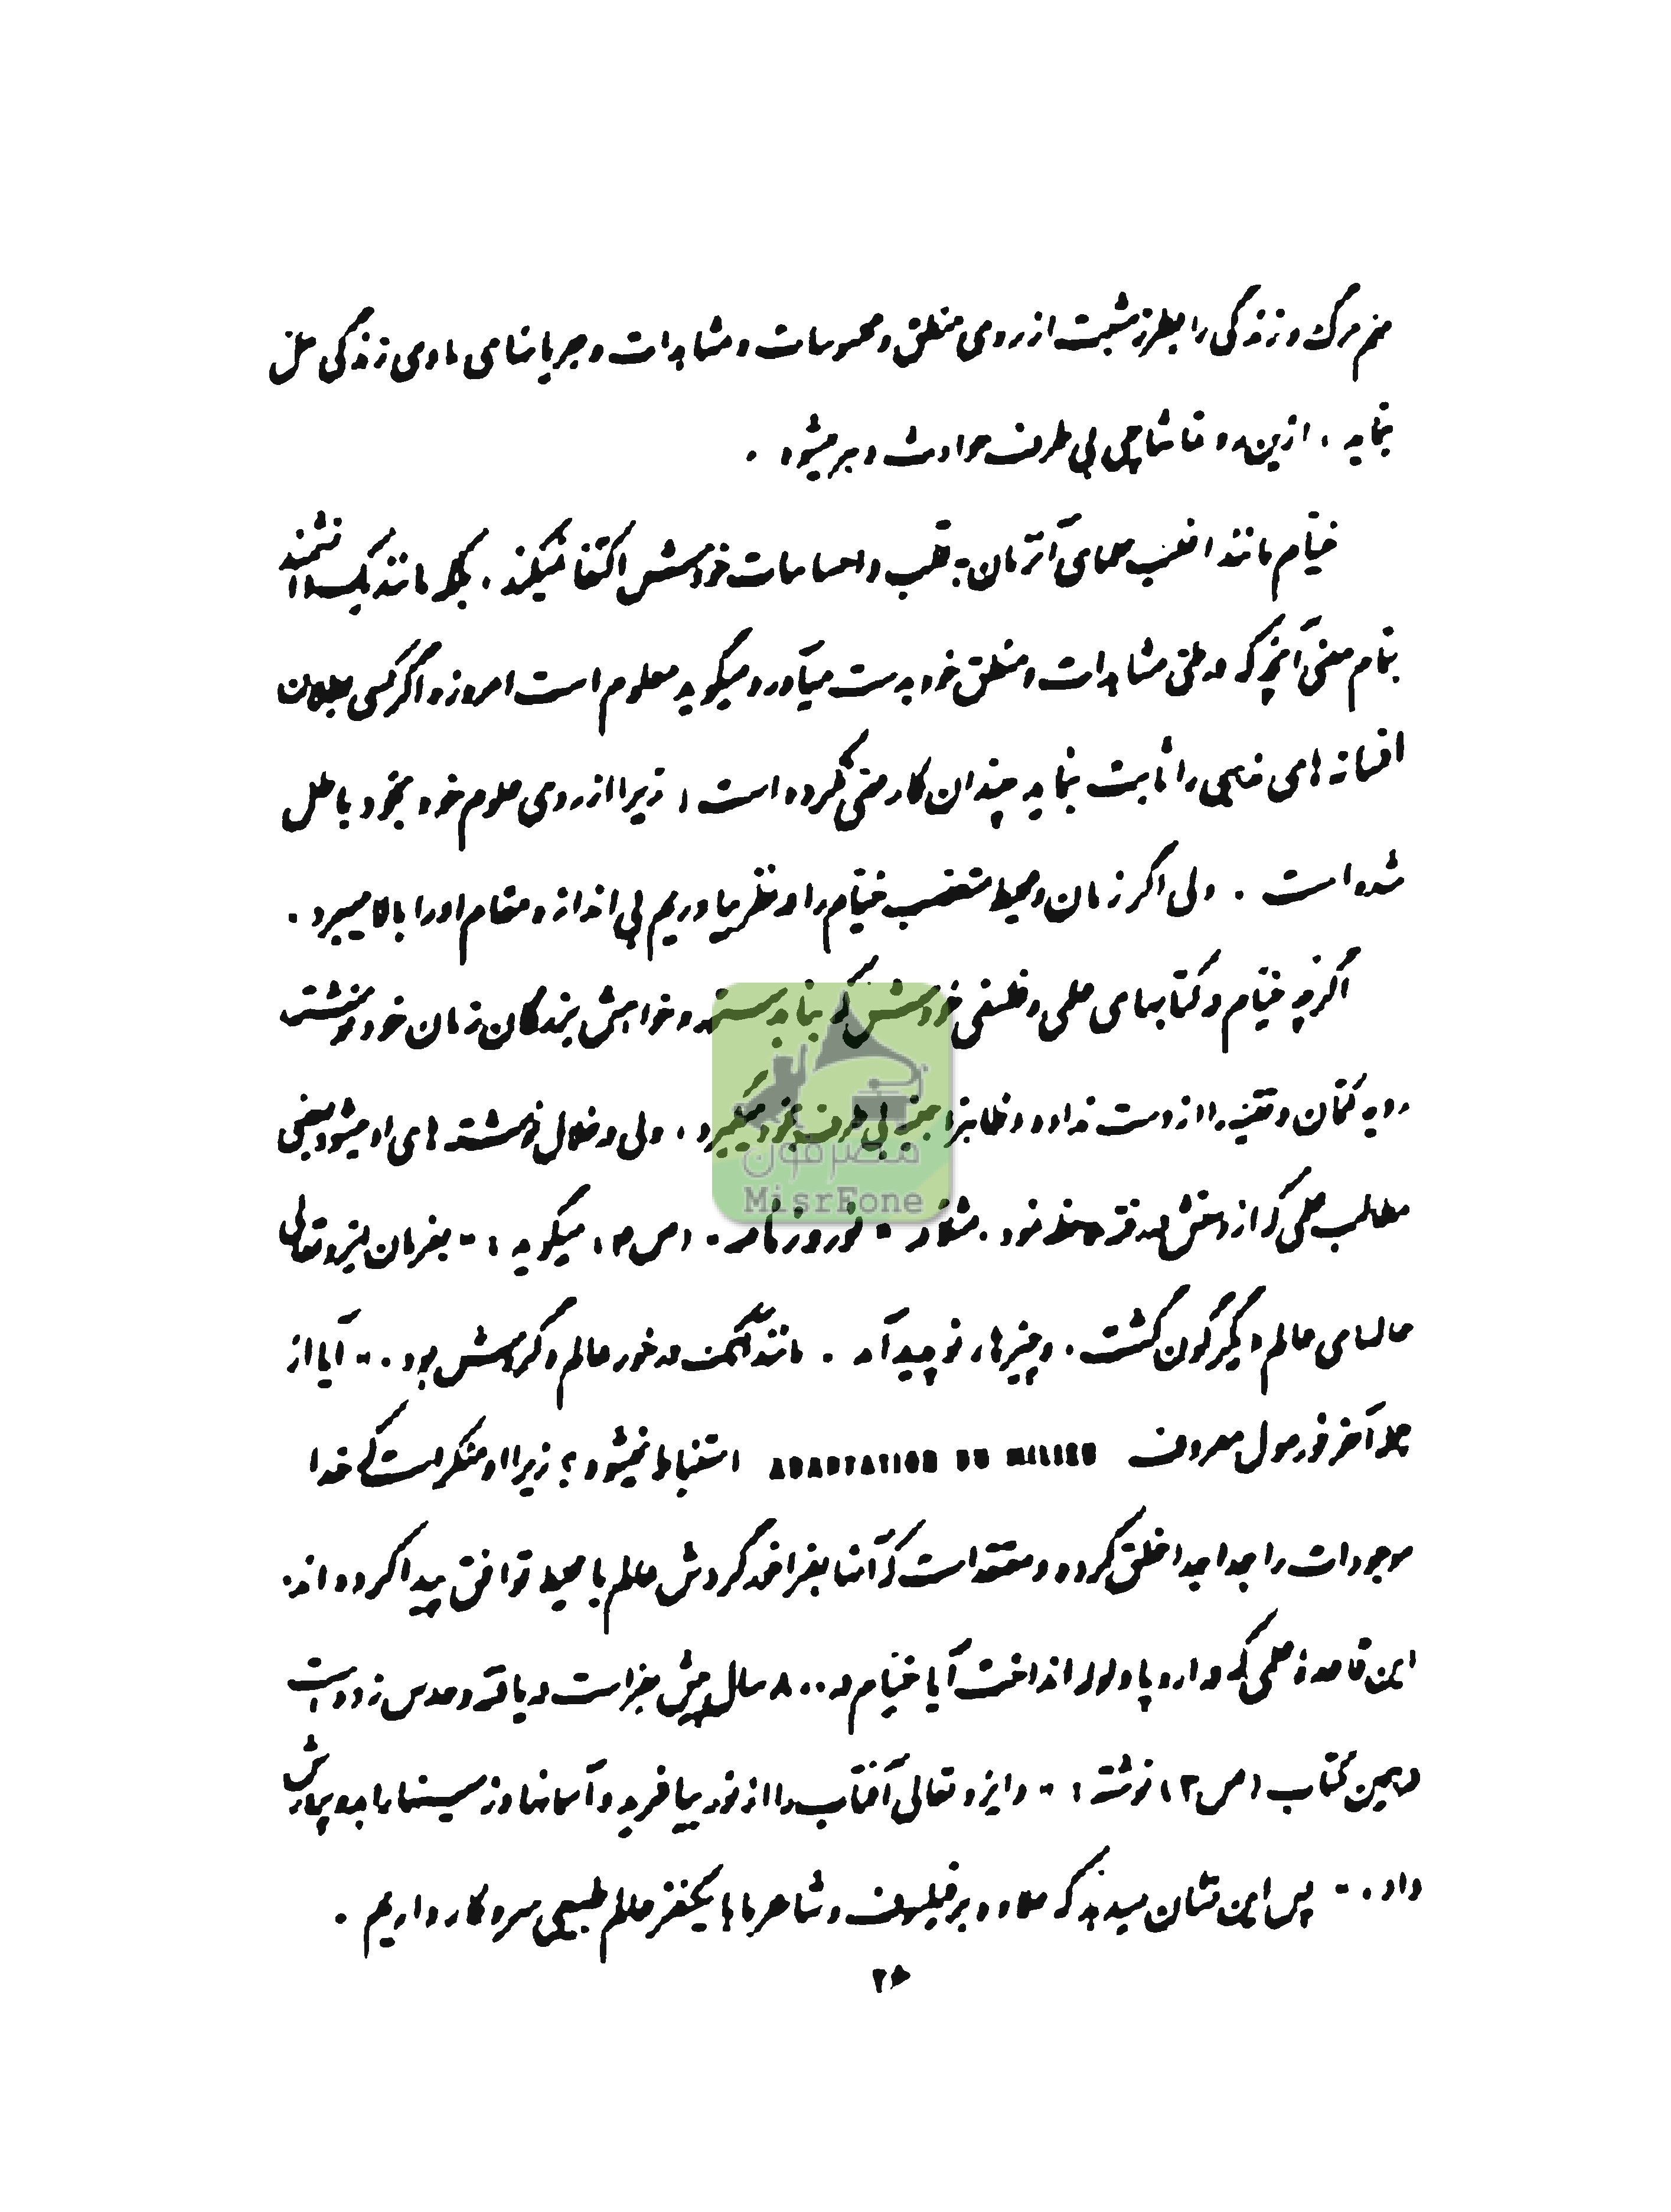 هم مرگ و زندگی را بطرز مثبت از روی منطق و محسوسات و مشاهدات و جریانهای مادی زندگی حل
بنماید ، ازین رو تماشاچی بی طرف حوادث دهر میشود .
خیام مانند اغلب علمای آنزمان به قلب و احساسات خودش اکتفا نمیکند ، بلکه مانند یک دانشمند
بتمام معنی آنچه که در طی مشاهدات و منطق خود بدست میآورد میگوید معلوم است امروزه اگر کسی بطلان
افسانه های مذهبی را ثابت بنماید چندان کار مهمی نکرده است ، زیرا از روی علوم خود بخود باطل
شده است . ولی اگر زمان و محیط متعصب خیام را در نظر بیاوریم بی اندازه مقام او را بالا میبرد .
اگرچه خیام در کتابهای علمی و فلسفی خودش که بنا بدستور و خواهش بزرگان زمان خود نوشته
رویه کتمان و تقیه را از دست نداده و ظاهرا جنبه بی طرف بخود میگیرد ، ولی در خلال نوشته های او میشود بعضی
مطالب علمی که از دستش در رفته ملاحظه نمود . مثلا در " نوروزنامه " (ص ۴) میگوید : " بفرمان ایزد تعالی
حالهای عالم دیگرگون گشت ، و چیزها، نو پدید آمد . مانند آنکه در خور عالم و گردش بود . " آیا از
جمله آخر فورمول معروف ADAPTATION DU MILIEU استنباط نمیشود ؟ زیرا او منکر است که خدا
موجودات را جدا جدا خلق کرده و معتقد است که آنها بفراخور گردش عالم با محیط توافق پیدا کرده اند .
این قاعدهٔ علمی که در اروپا ولوله انداخت آیا خیام در ۸۰۰ سال پیش بفراست دریافته و حدس زده است
در همین کتاب (ص ۳) نوشته : " و ایزد تعالی آفتاب را از نور بیافرید و آسمانها و زمینها را بدو پرورش
داد . " پس این نشان میدهد که علاوه بر فیلسوف و شاعر ما با یکنفر عالم طبیعی سر و کار داریم .
۲۵
مصرفون
MisrFone